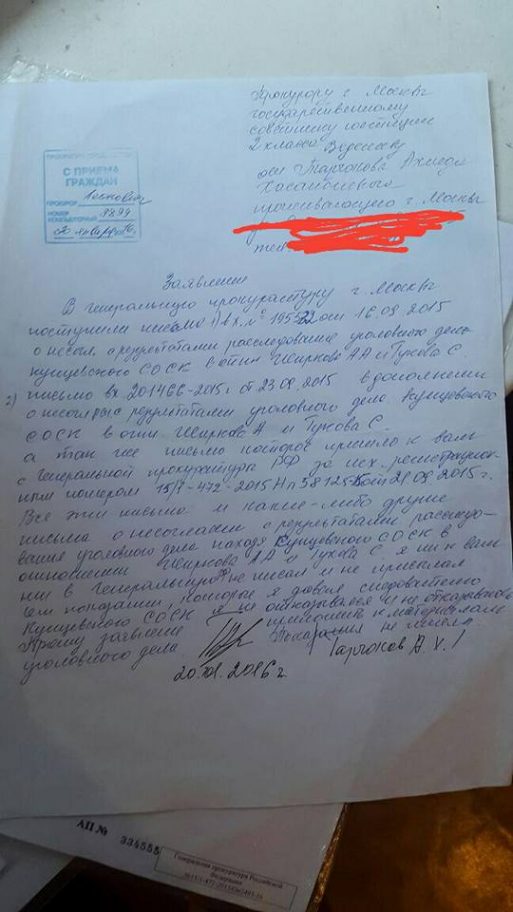 Прокурору г. Москвы
государственному
советнику юстиции
2 класса
от Таргонова Ахмеда
проживающего г. Москвы
тел.
С ПРИЕМА
ГРАЖДАН
ПРОКУРОР
НОМЕР
8899
Заявление
В генеральную прокуратуру г. Москвы
поступили письмо 1) вх. № 195522 от 16.09.2015
о несогл. с результатами расследования уголовного дела
Кунцевского СОСК в отн. Жиркова АА и Гукова С
2) письмо вх 201466-2015г от 23.09.2015 в дополнении
о несоглас с результатами уголовного дела Кунцевского
СОСК в отн. Жиркова А и Гукова С.
а так же письмо которое пришло к вам
с Генеральной прокуратура РФ за исх. регистрацион-
ным номером 15/7-472-2015
Все эти письма и какие-либо другие
письма о несогласии с результатами расследо-
вания уголовного дела Кунцевского СОСК в
отношении Жиркова АА и Гукова С я ни к вам
ни в Генеральную не писал и не присылал
показаний, которые я давал следователю
Кунцевского СОСК я не отказывался и не отказываюсь
Прошу заявление приобщить к материалам
уголовного дела
20.01.2016г
АП №
334555
Генеральная прокуратура Российской
Федерации